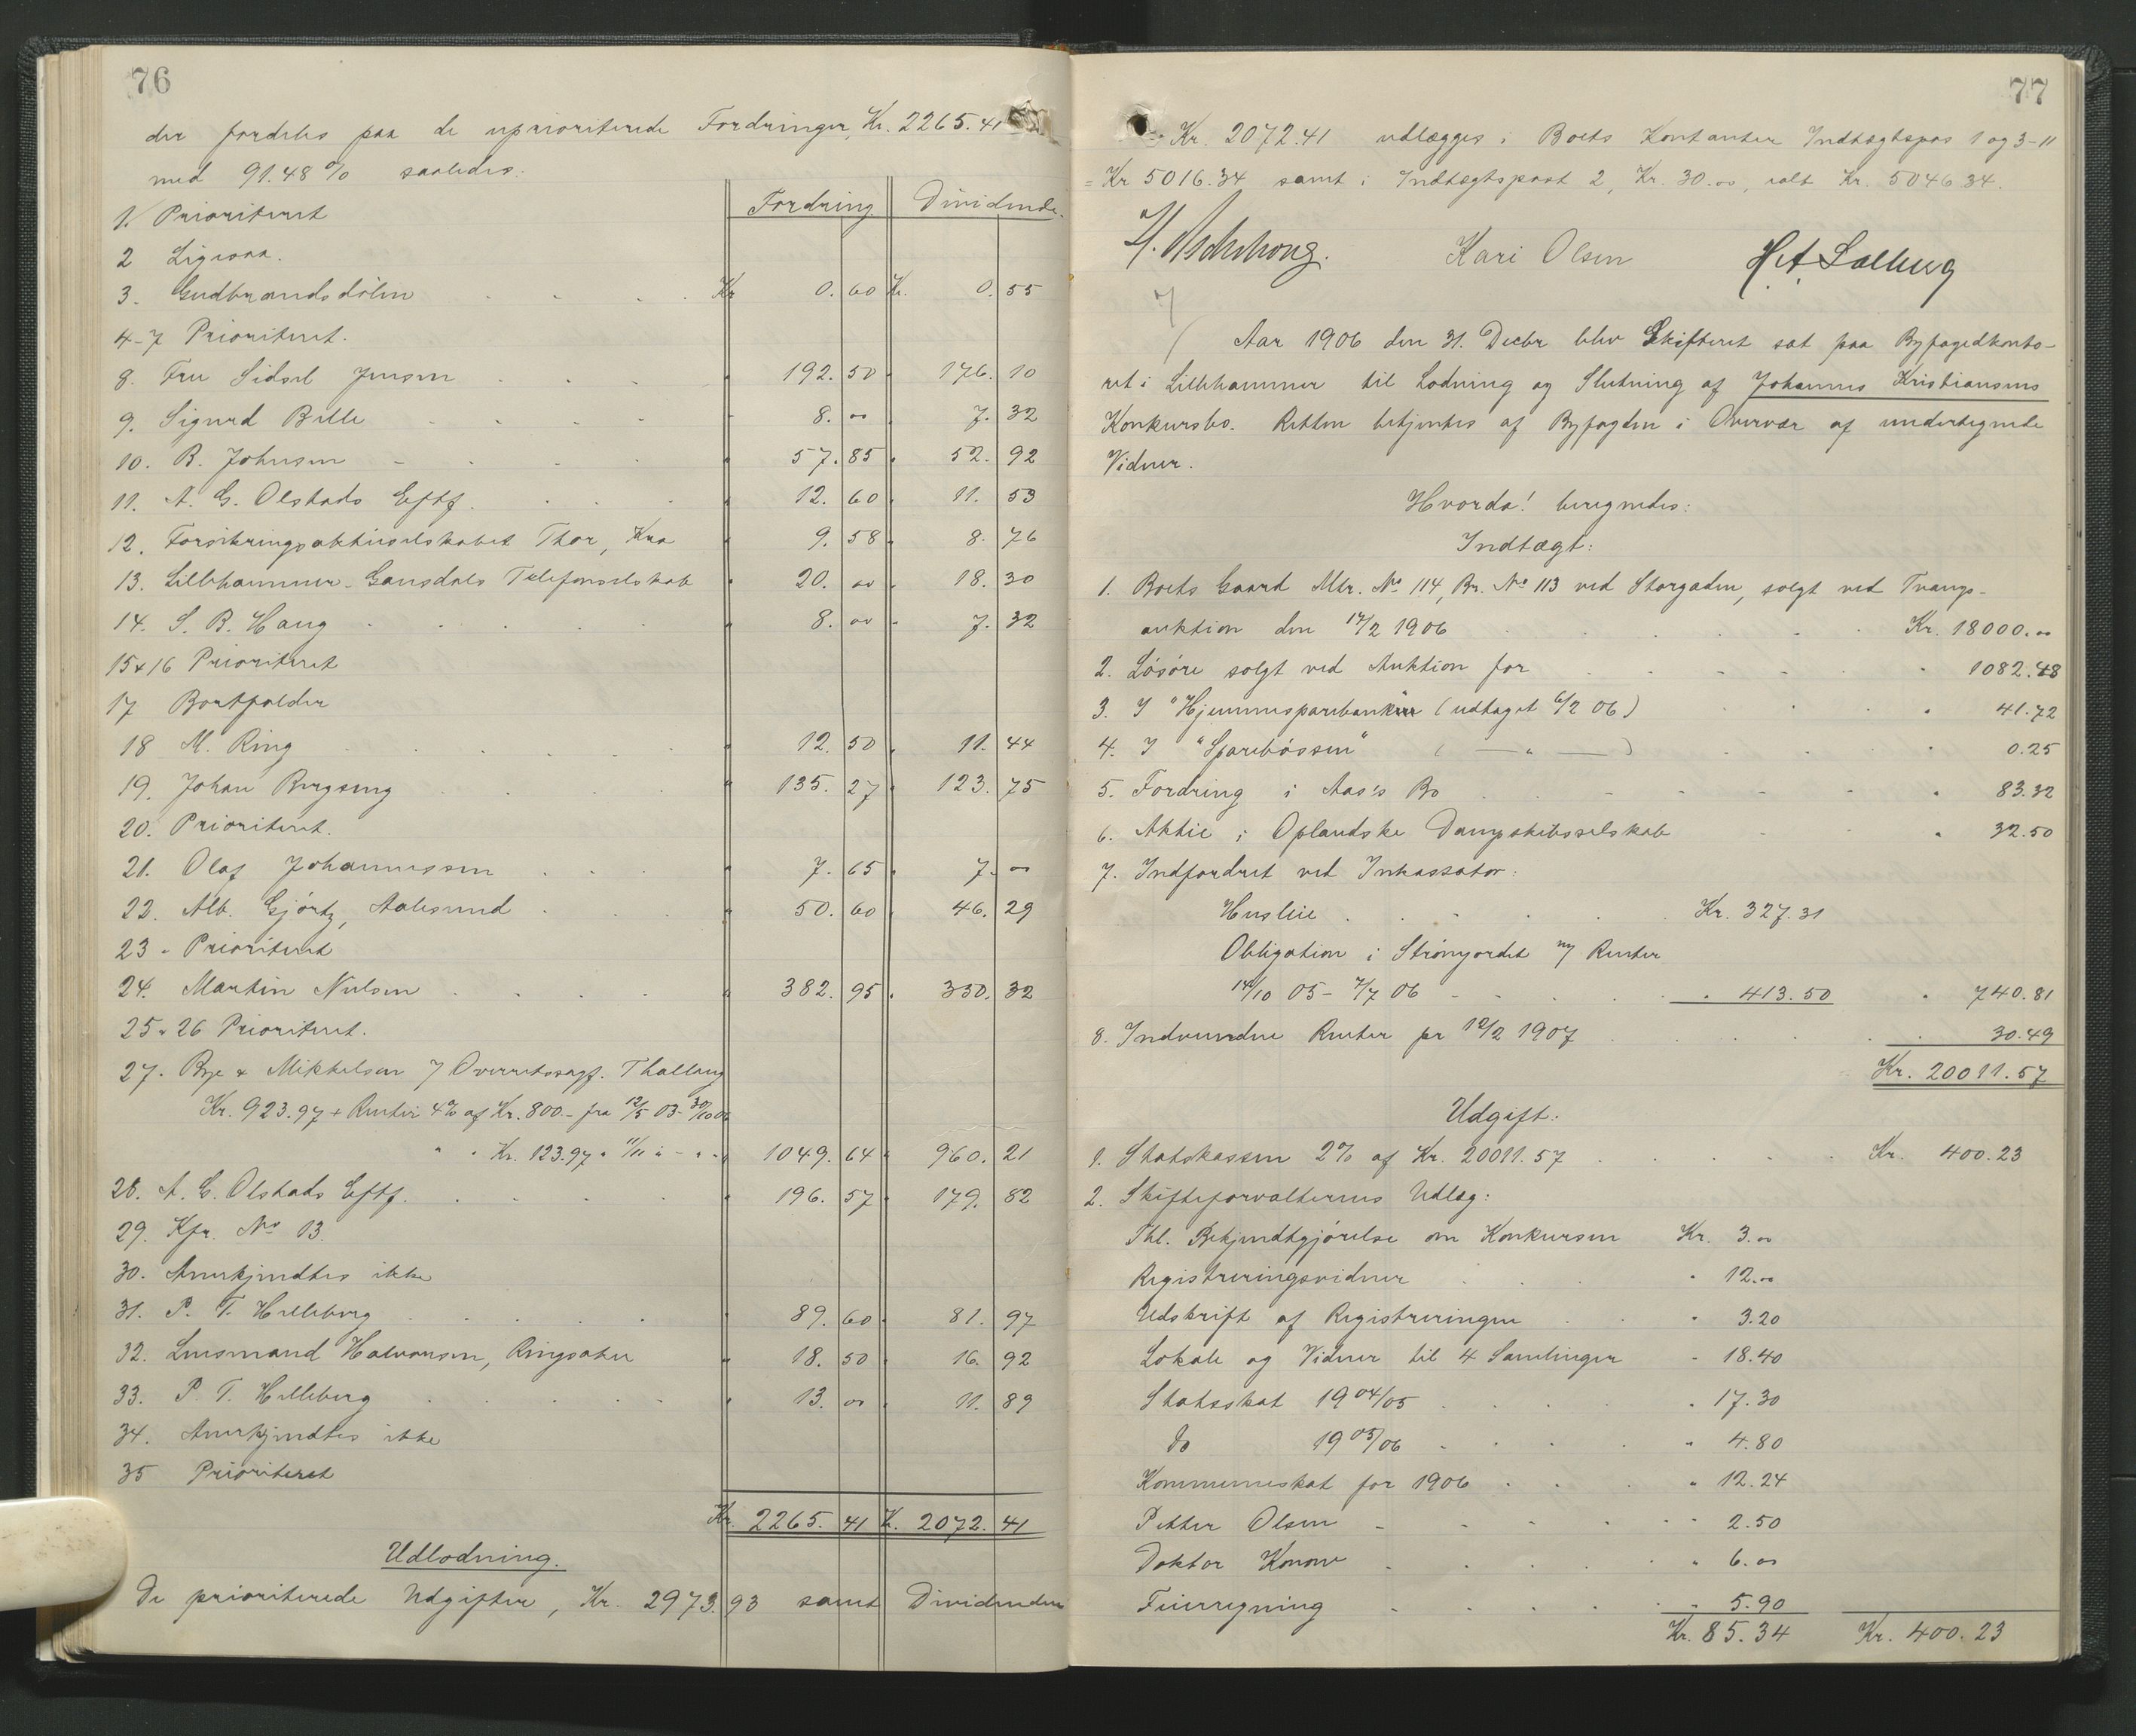 76
der fordeles paa de uprioriterede Fordringer, Kr. 2265.41
med 91.48 % saaledes:
Fordring. Dividende.
1. Prioriteret
2 Ligesaa.
3. Gudbrandsdølen Kr 0.60 Kr. 0.55
4-7 Prioriteret.
8. Fru Sidsel Jensen " 192.50 " 176.10
9. Sigurd Bille " 8.00 " 7.32
10. B. Johnsen " 57.85 " 52.92
11. A. G. Olstads Eftf. " 12.60 " 11.53
12. Forsikringsaktieselskabet Thor, Kra " 9.58 " 8.76
13. Lillehammer-Gausdals Telefonselskab " 20.00 " 18.30
14. S. B. Haug " 8.00 " 7.32
15 & 16 Prioriteret
17 Bortfalder
18 M. Ring " 12.50 " 11.44
19. Johan Bergseng " 135.27 " 123.75
20. Prioriteret.
21. Olaf Johannessen " 7.65 " 7.00
22. Alb. Gjörtz, Aalesund " 50.60 " 46.29
23 - Prioriteret
24. Martin Nielsen " 382.95 " 350.32
25 & 26 Prioriteret.
27. Bye & Mikkelsen v/ Overretssagf. Thallaug
Kr. 923.97 + Renter 4% af Kr. 800.- fra 12/5 03- 30/10 06
" " Kr. 123.97 " 11/11 " - " " " 1049.64 " 960.21
28. A. G. Olstads Eftf. " 196.57 " 179.82
29. Kfr. No 13.
30. Anerkjendtes ikke
31. P. T. Hilleberg " 89.60 " 81.97
32. Lensmand Halvorsen, Ringsaker " 18.50 " 16.92
33. P. T. Hilleberg " 13.00 " 11.89
34. Anerkjendtes ikke
35 Prioriteret
Kr. 2265.41 Kr. 2072.41
Udlodning.
De prioriterede Udgifter, Kr. 2973.93 samt Dividenden
77
Kr. 2072.41 udlægges i Boets Kontanter Indtægtspos 1 og 3-11
= Kr 5016.34 samt i Indtægtspost 2, Kr. 30.00, ialt Kr. 5046.34.
Kari Olsen
Aar 1906 den 31. Decbr blev Skifteret sat paa Byfogedkonto-
ret i Lillehammer til Lodning og Slutning af Johannes Kristiansens
Konkursbo. Retten betjentes af Byfogden i Overvær af undertegnede
Vidner.
Hvorda! beregnedes:
Indtægt:
1. Boets Gaard Mtr. No 114, Br. No 113 ved Storgaden, solgt ved Tvangs-
auktion den 17/2 1906 Kr. 18000.00
2. Løsøre solgt ved Auktion for " 1082.48
3. I "Hjemmesparebanken" (udtaget 6/2 06) " 41.72
4. I "Sparebøssen" ( — " — ) " 0.25
5. Fordring i Aas's Bo " 83.32
6. Aktie i Oplandske Dampskibsselskab " 32.50
7. Indfordret ved Inkassator:
Husleie Kr. 327.31
Obligation i Strömjordet m/ Renter
14/10 05 - 7/7 06 " 413.50 " 740.81
8. Indvundne Renter pr 12/2 1907 " 30.49
Kr. 20011.57
Udgift:
1. Statskassen 2% af Kr. 20011.57 Kr. 400.23
2. Skifteforvalterens Udlæg:
Thl. Bekjendtgjørelse om Konkursen Kr. 3.00
Registreringsvidner " 12.00
Udskrift af Registreringen " 3.20
Lokale og Vidner til 4 Samlinger " 18.40
Statsskat 1904/05 " 17.30
do 1905/06 " 4.80
Kommuneskat for 1906 " 12.24
Petter Olsen " 2.50
Doktor Konow " 6.00
Feierregning " 5.90
Kr. 85.34 Kr. 400.23